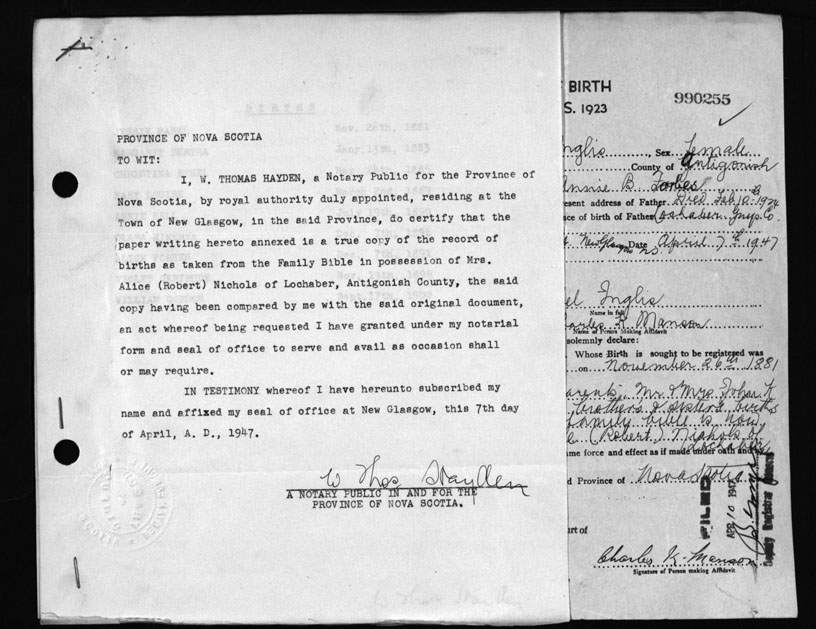 PROVINCE OF NOVA SCOTIA
TO WIT:
I, W. THOMAS HAYDEN, a Notary Public for the Province of
Nova Scotia, by royal authority duly appointed, residing at the
Town of New Glasgow, in the said Province, do certify that the
paper writing hereto annexed is a true copy of the record of
births as taken from the Family Bible in possession of Mrs.
Alice (Robert) Nichols of Lochaber, Antigonish County, the said
copy having been compared by me with the said original document,
an act whereof being requested I have granted under my notarial
form and seal of office to serve and avail as occasion shall
or may require.
IN TESTIMONY whereof I have hereunto subscribed my
name and affixed my seal of office at New Glasgow, this 7th day
of April, A. D., 1947.
W Thos Hayden
A NOTARY PUBLIC IN AND FOR THE
PROVINCE OF NOVA SCOTIA.
BIRTH
S. 1923
990255
Inglis, Sex Female
County of Antigonish
Annie B.
resent address of Father Died Feb 10 1924
ce of birth of Father Lochaber
Date April 7th 1947
el Inglis
Name in full
Charles K Manson
Name of Person Making Affidavit
solemnly declare:
Whose Birth is sought to be registered was
on November 26th 1881
arents, Mr & Mrs John K
brothers & sisters births
family bible is now
(Robert) Nichols of
Lochaber
me force and effect as if made under oath and
d Province of Nova Scotia
FILED
APR 10 1947
Deputy Registrar General
rt of
Charles K. Manson
Signature of Person making Affidavit